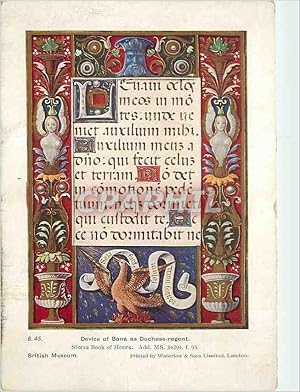 Leuaui oculos
meos in mõ
tes: unde ue
niet auxilium mihi.
Auxilium meum a
dño: qui fecit celum
et terram. Nõ det
in cõmotionẽ pede
tuum:
qui custodit te.
cce nõ dormitabit ne
B. 45. Device of Bana as Duchess-regent.
Sforza Book of Hours. Add. MS. 34294, f. 93.
British Museum. Printed by Waterlow & Sons Limited, London.